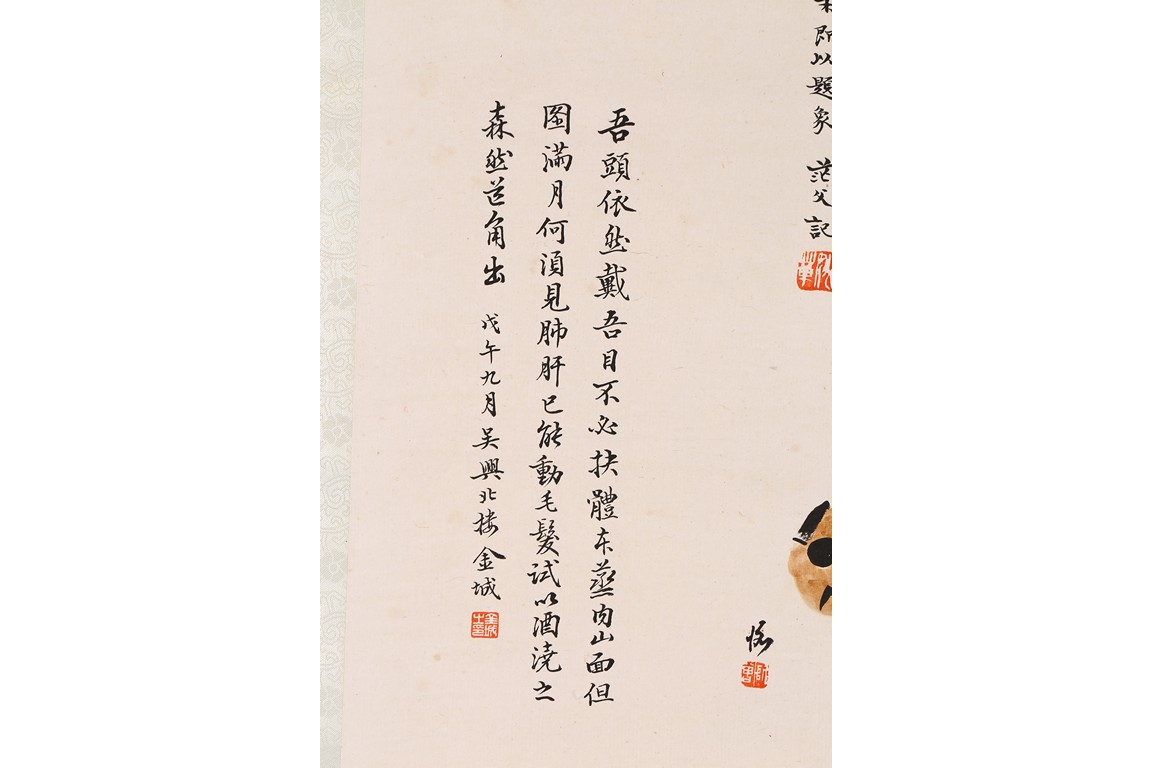 即以題象 茫父記
姚華
恪
師曾
吾頭依然戴吾目不必抉體本蒸肉山面但
圖滿月何須見肺肝已能動毛髮試以酒澆之
森然芒角出 戊午九月吴興北楼金城